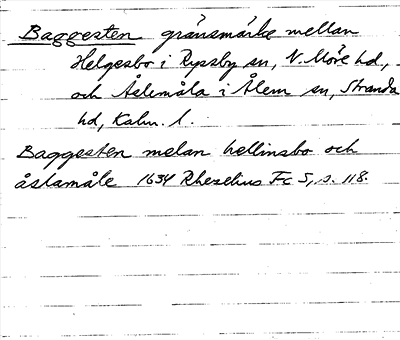 Baggesten gränsmärke mellan
Helgesbo i Ryssby sn, N. Möre hd,
och Åslemåla i Ålem sn, Stranda
hd, Kalm. l.
Baggesten melan hellinsbo och
åslamåle 1634 Rhezelius Fc 5, s. 118.